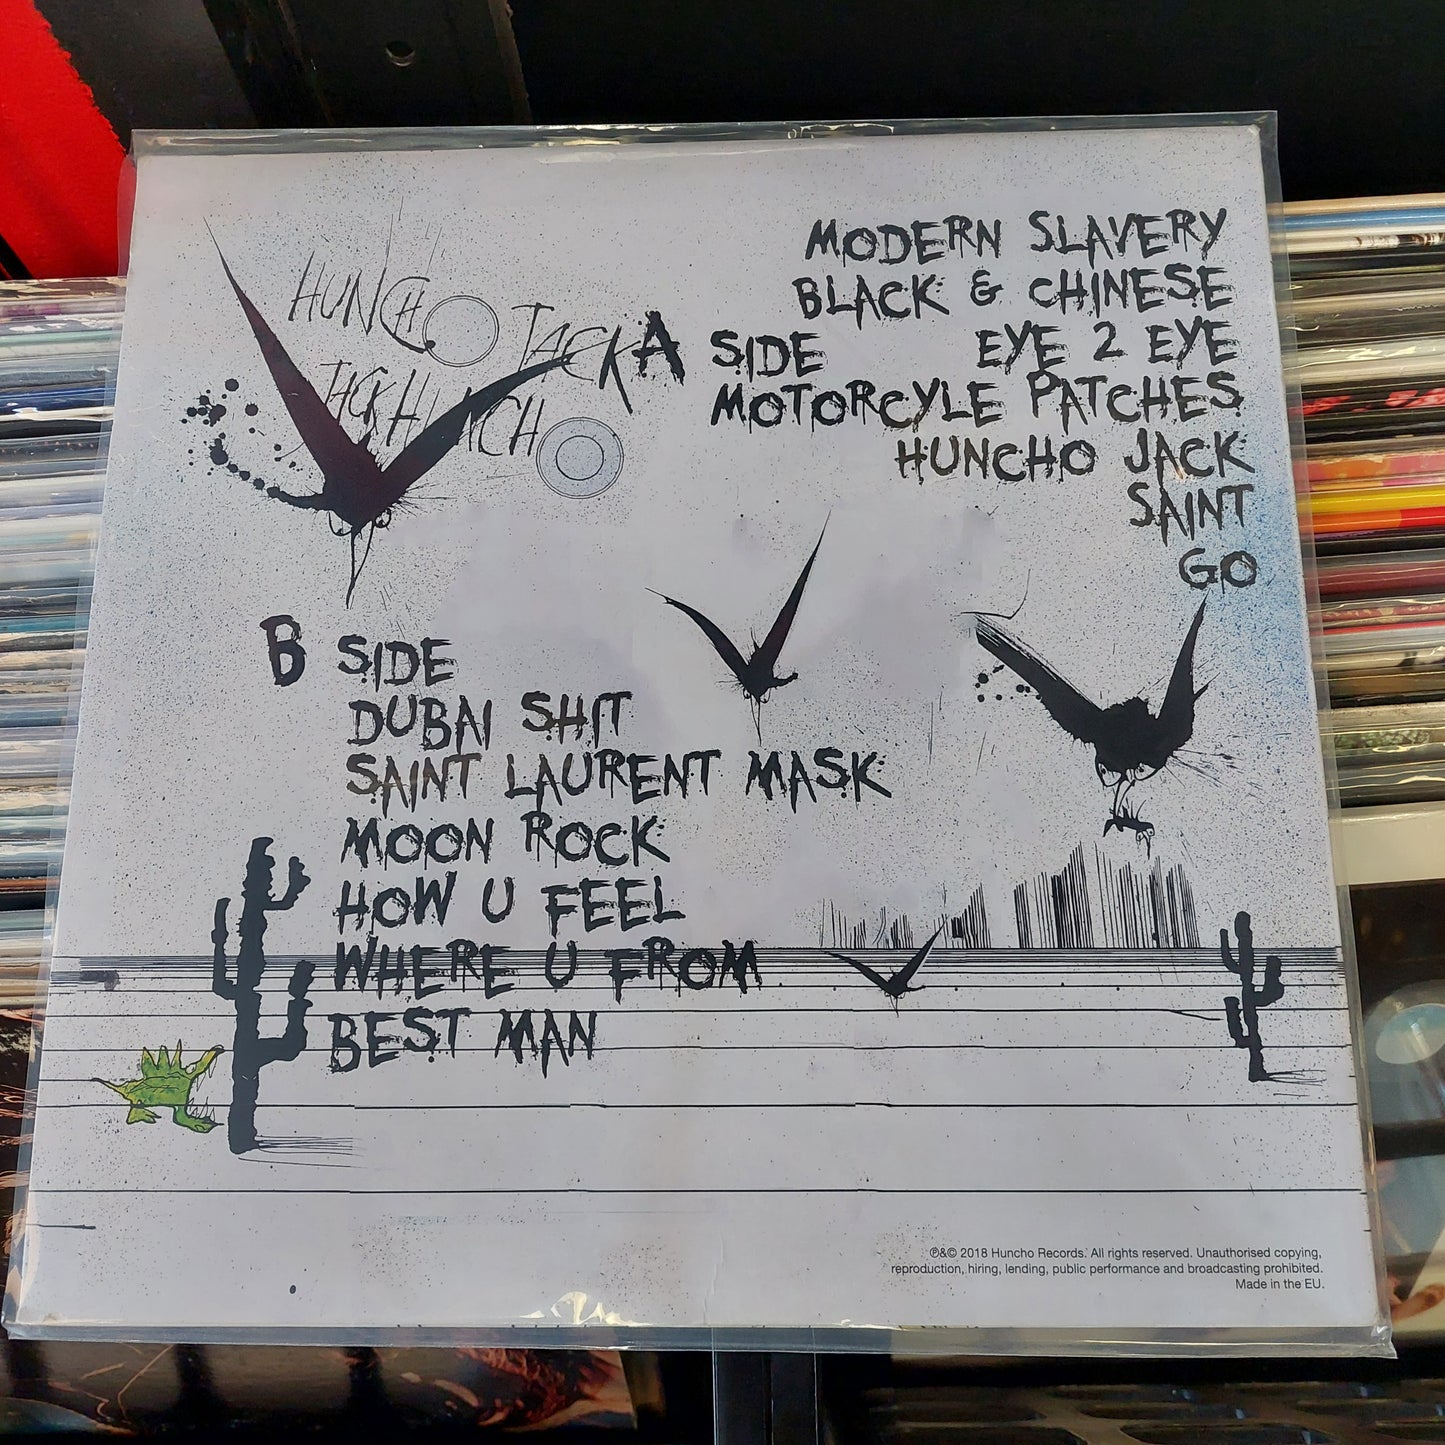 HUNCHO JACK
JACK HUNCHO
MODERN SLAVERY
BLACK & CHINESE
A SIDE EYE 2 EYE
MOTORCYLE PATCHES
HUNCHO JACK
SAINT
GO
B SIDE
DUBAI SHIT
SAINT LAURENT MASK
MOON ROCK
HOW U FEEL
WHERE U FROM
BEST MAN
℗&© 2018 Huncho Records. All rights reserved. Unauthorised copying,
reproduction, hiring, lending, public performance and broadcasting prohibited.
Made in the EU.